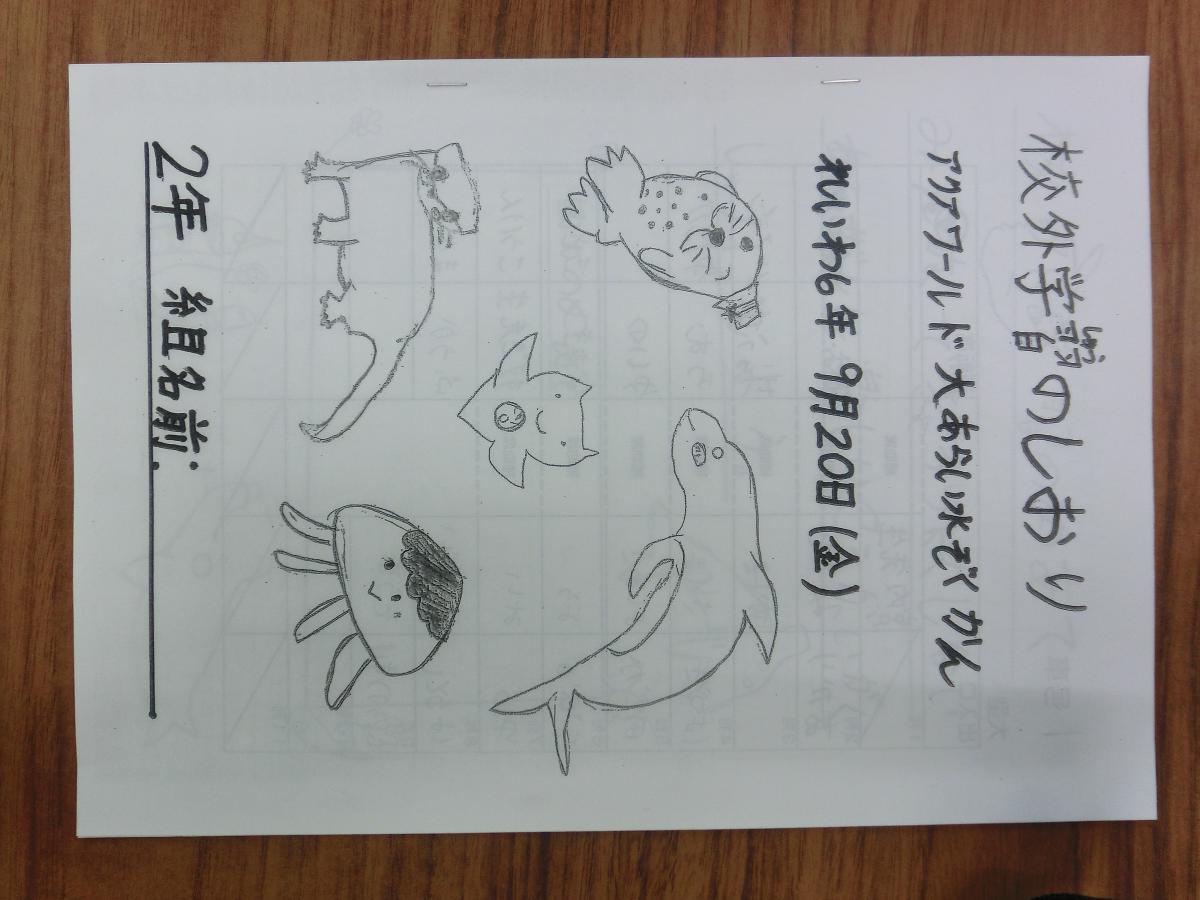 校外学習のしおり
アクアワールド大あらい水ぞくかん
れいわ6年 9月20日(金)
2年 組名前: